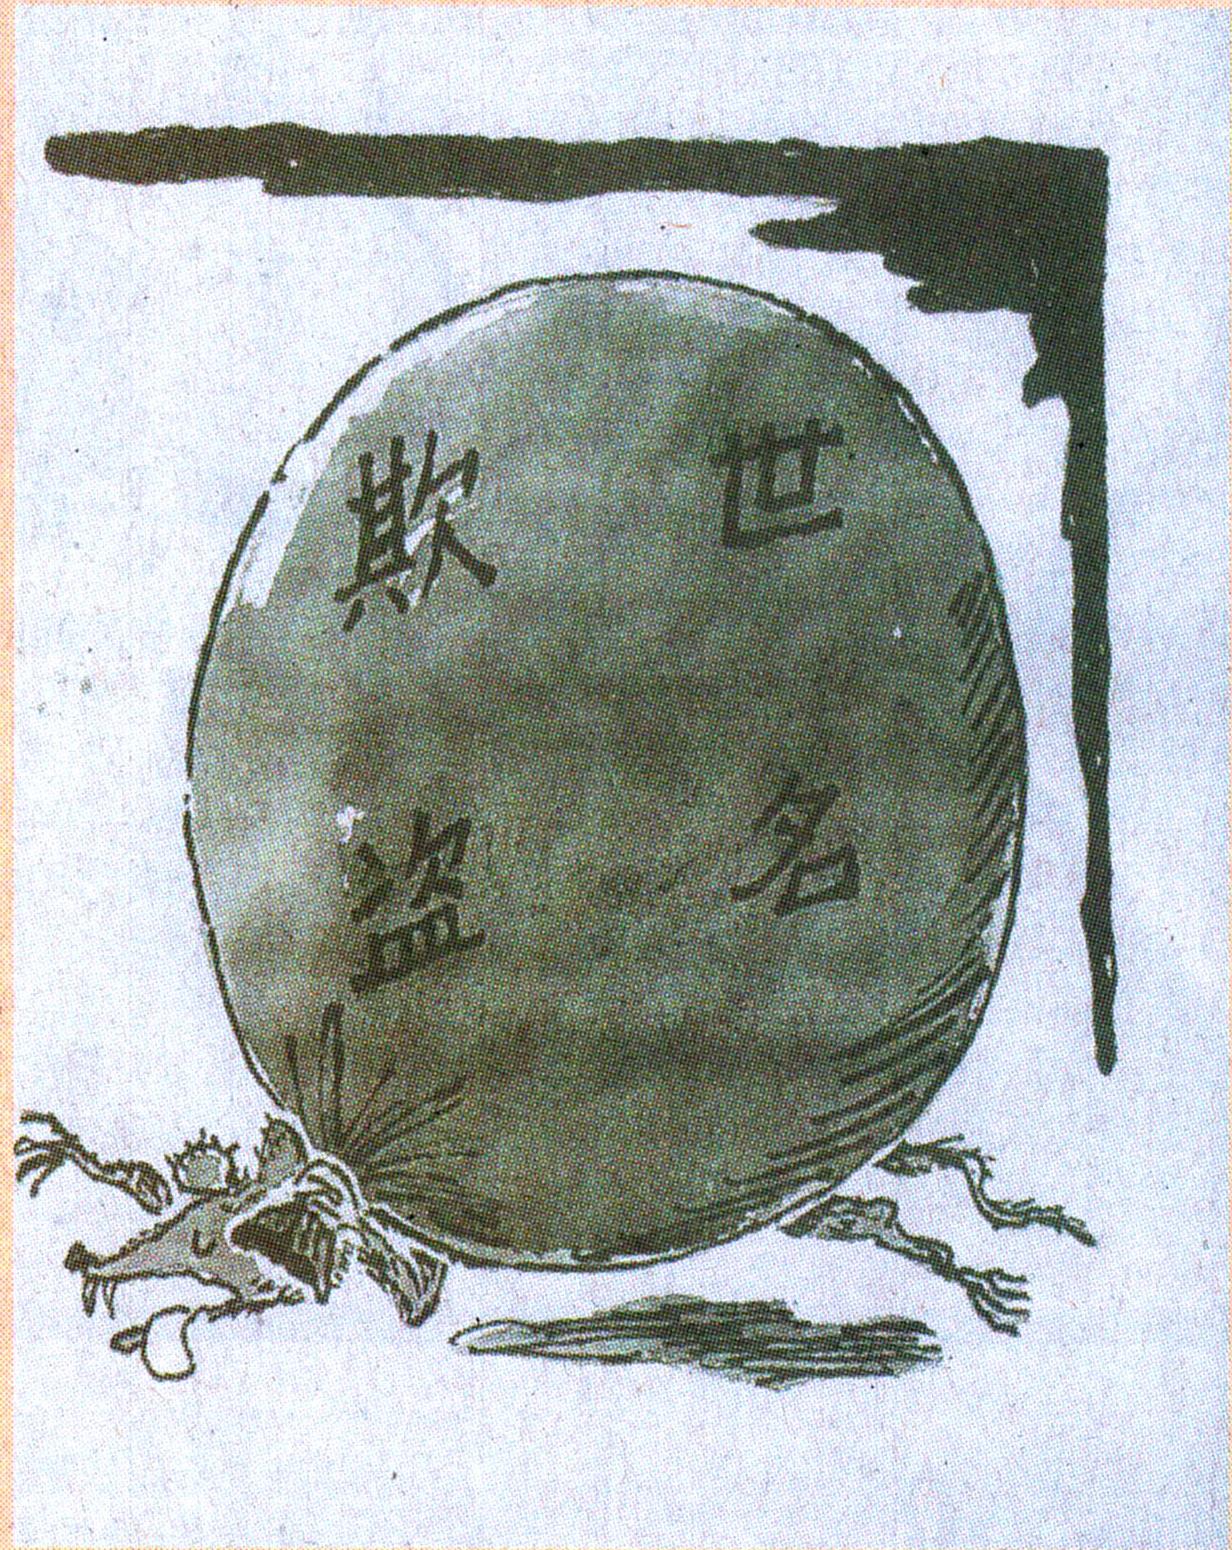 欺世
盗名